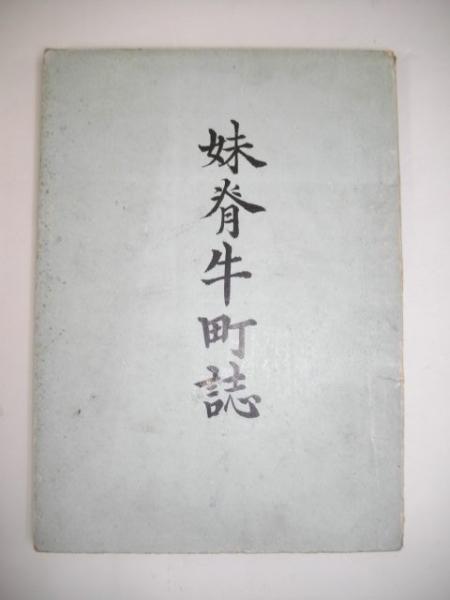 妹脊牛町誌